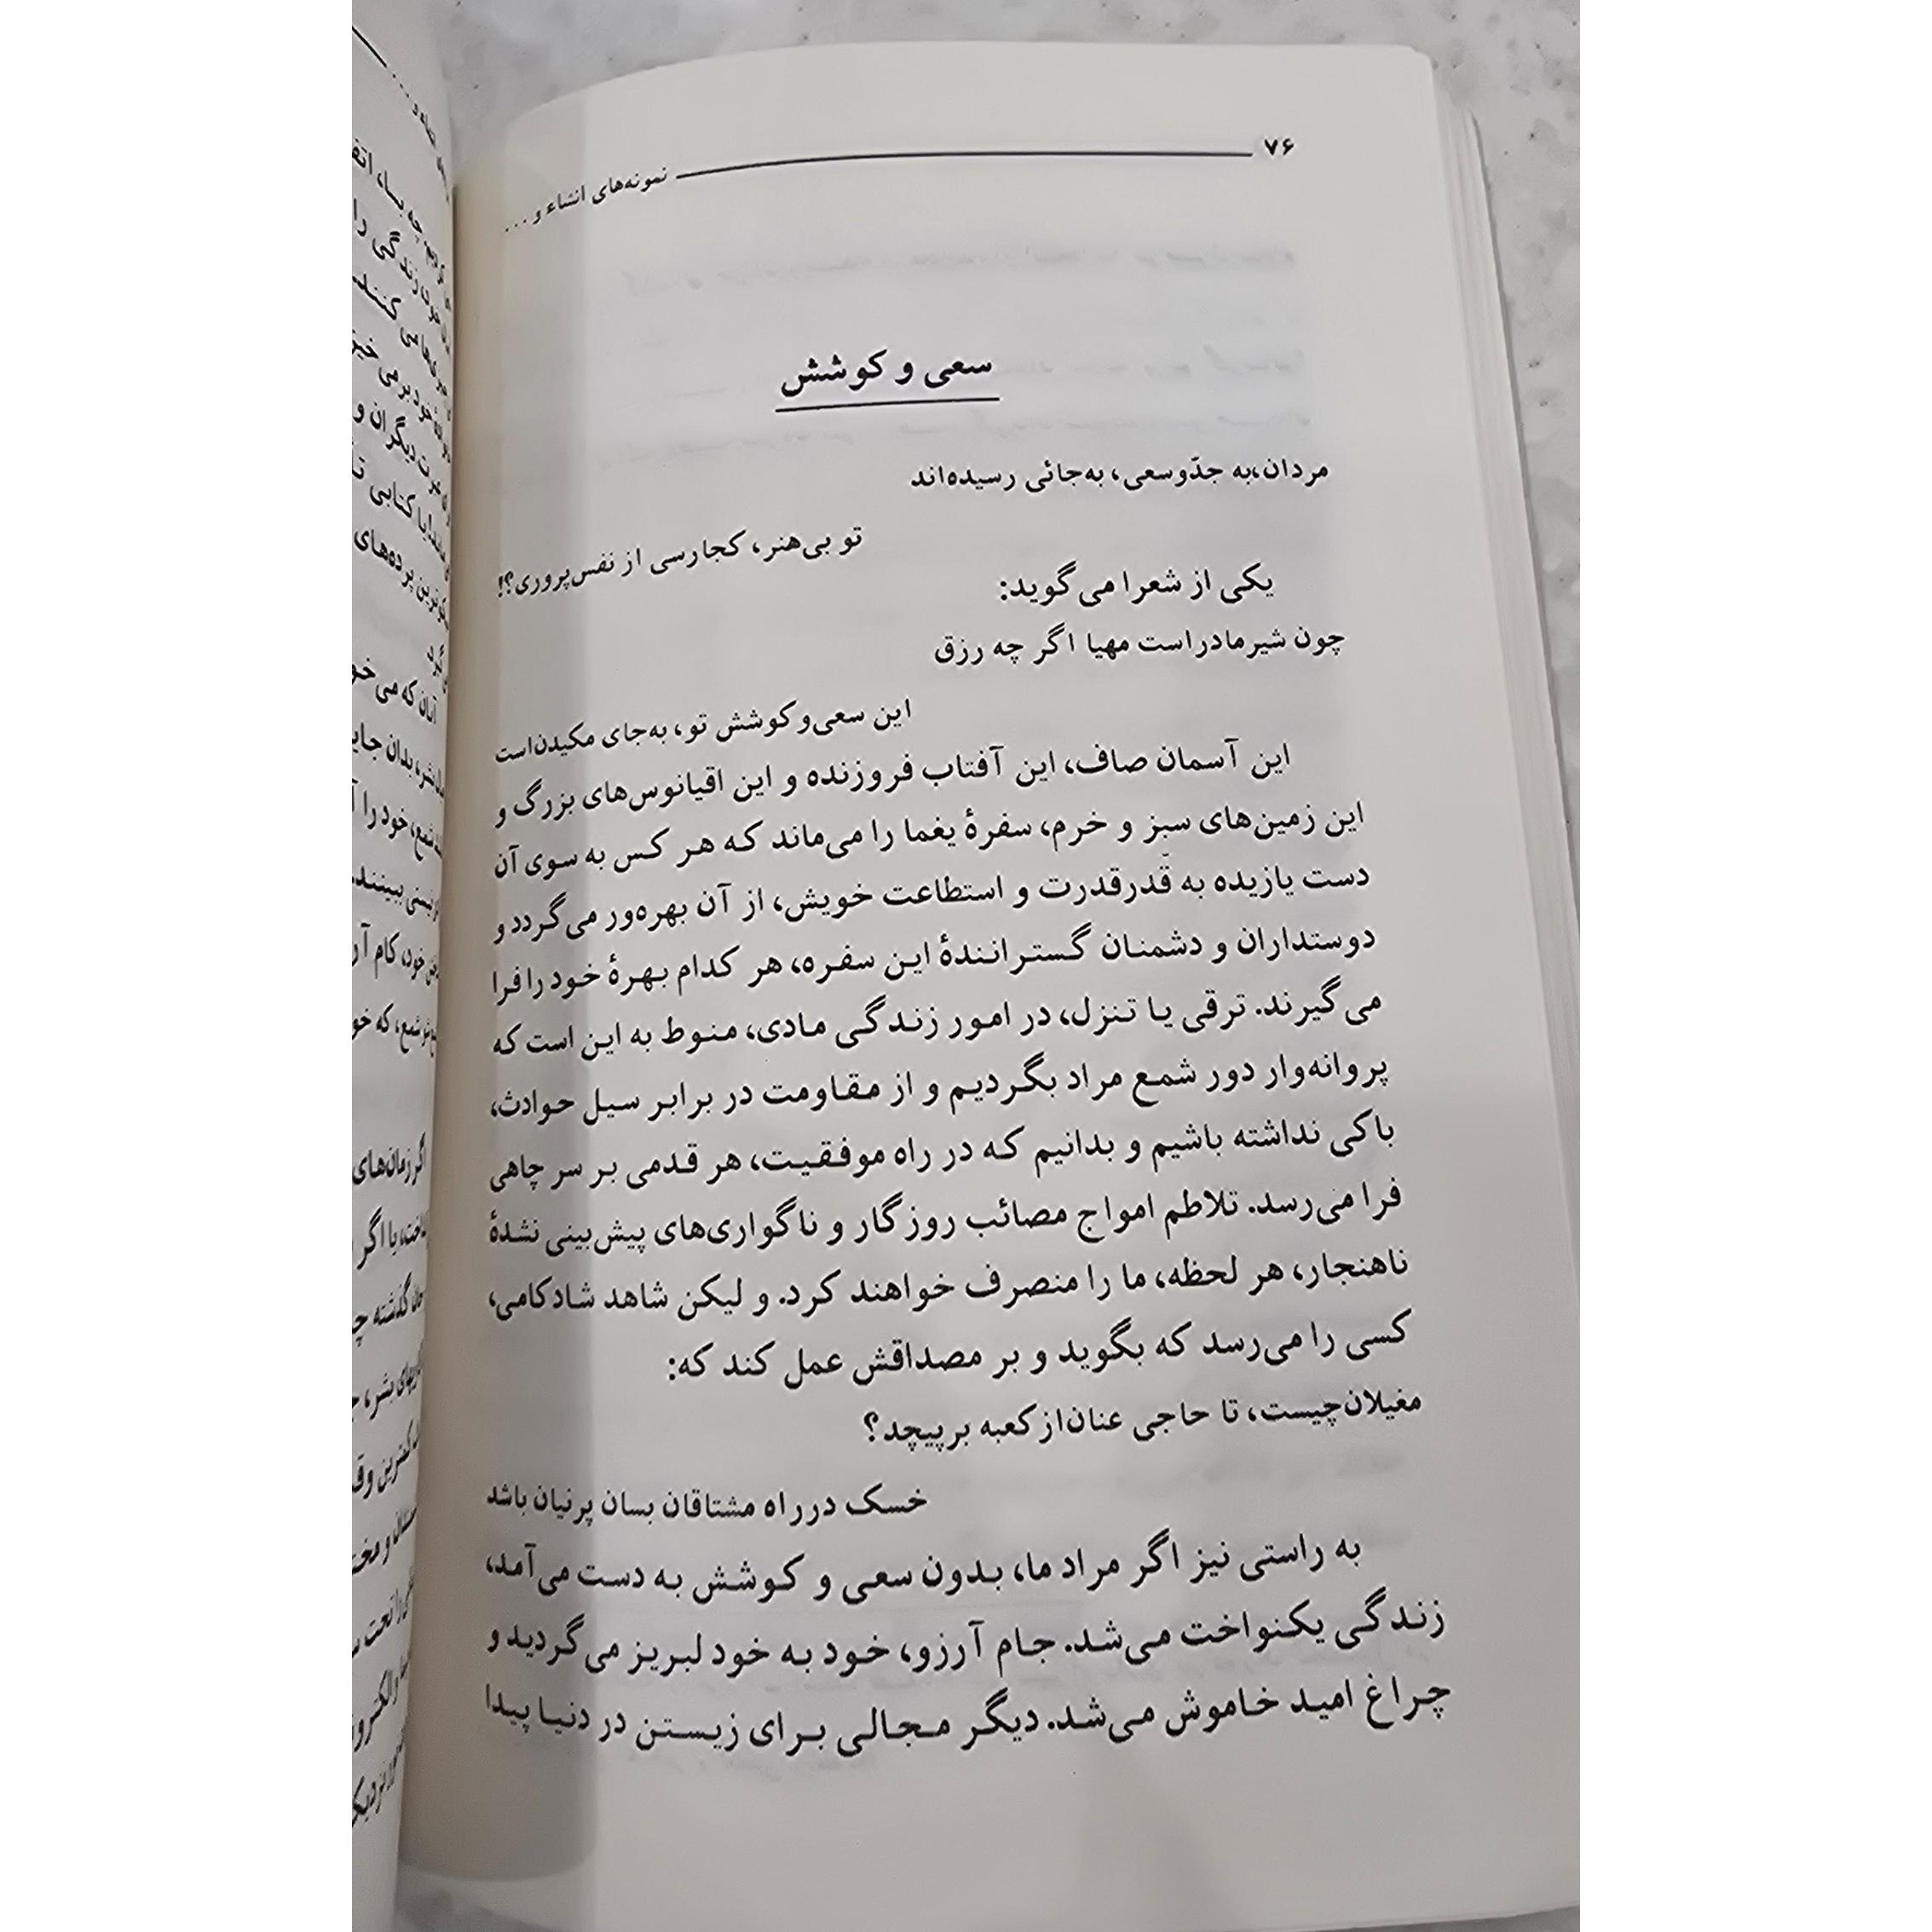 ۷۶
نمونه‌های انشاء و ...
سعی و کوشش
مردان،به جدّوسعی، به‌جائی رسیده‌اند
تو بی‌هنر، کجارسی از نفس‌پروری؟!
یکی از شعرا می‌گوید:
چون شیرمادراست مهیا اگر چه رزق
این سعی‌وکوشش تو، به‌جای مکیدن‌است
این آسمان صاف، این آفتاب فروزنده و این اقیانوس‌های بزرگ و
این زمین‌های سبز و خرم، سفرهٔ یغما را می‌ماند که هر کس به سوی آن
دست یازیده به قدرقدرت و استطاعت خویش، از آن بهره‌ور می‌گردد و
دوستداران و دشمنان گسترانندهٔ این سفره، هر کدام بهرهٔ خود را فرا
می‌گیرند. ترقی یا تنزل، در امور زندگی مادی، منوط به این است که
پروانه‌وار دور شمع مراد بگردیم و از مقاومت در برابر سیل حوادث،
باکی نداشته باشیم و بدانیم که در راه موفقیت، هر قدمی بر سر چاهی
فرا می‌رسد. تلاطم امواج مصائب روزگار و ناگواری‌های پیش‌بینی نشدهٔ
ناهنجار، هر لحظه، ما را منصرف خواهند کرد. و لیکن شاهد شادکامی،
کسی را می‌رسد که بگوید و بر مصداقش عمل کند که:
مغیلان‌چیست، تا حاجی عنان‌ازکعبه برپیچد؟
خسک درراه مشتاقان بسان پرنیان باشد
به راستی نیز اگر مراد ما، بدون سعی و کوشش به دست می‌آمد،
زندگی یکنواخت می‌شد. جام آرزو، خود به خود لبریز می‌گردید و
چراغ امید خاموش می‌شد. دیگر مجالی برای زیستن در دنیا پیدا